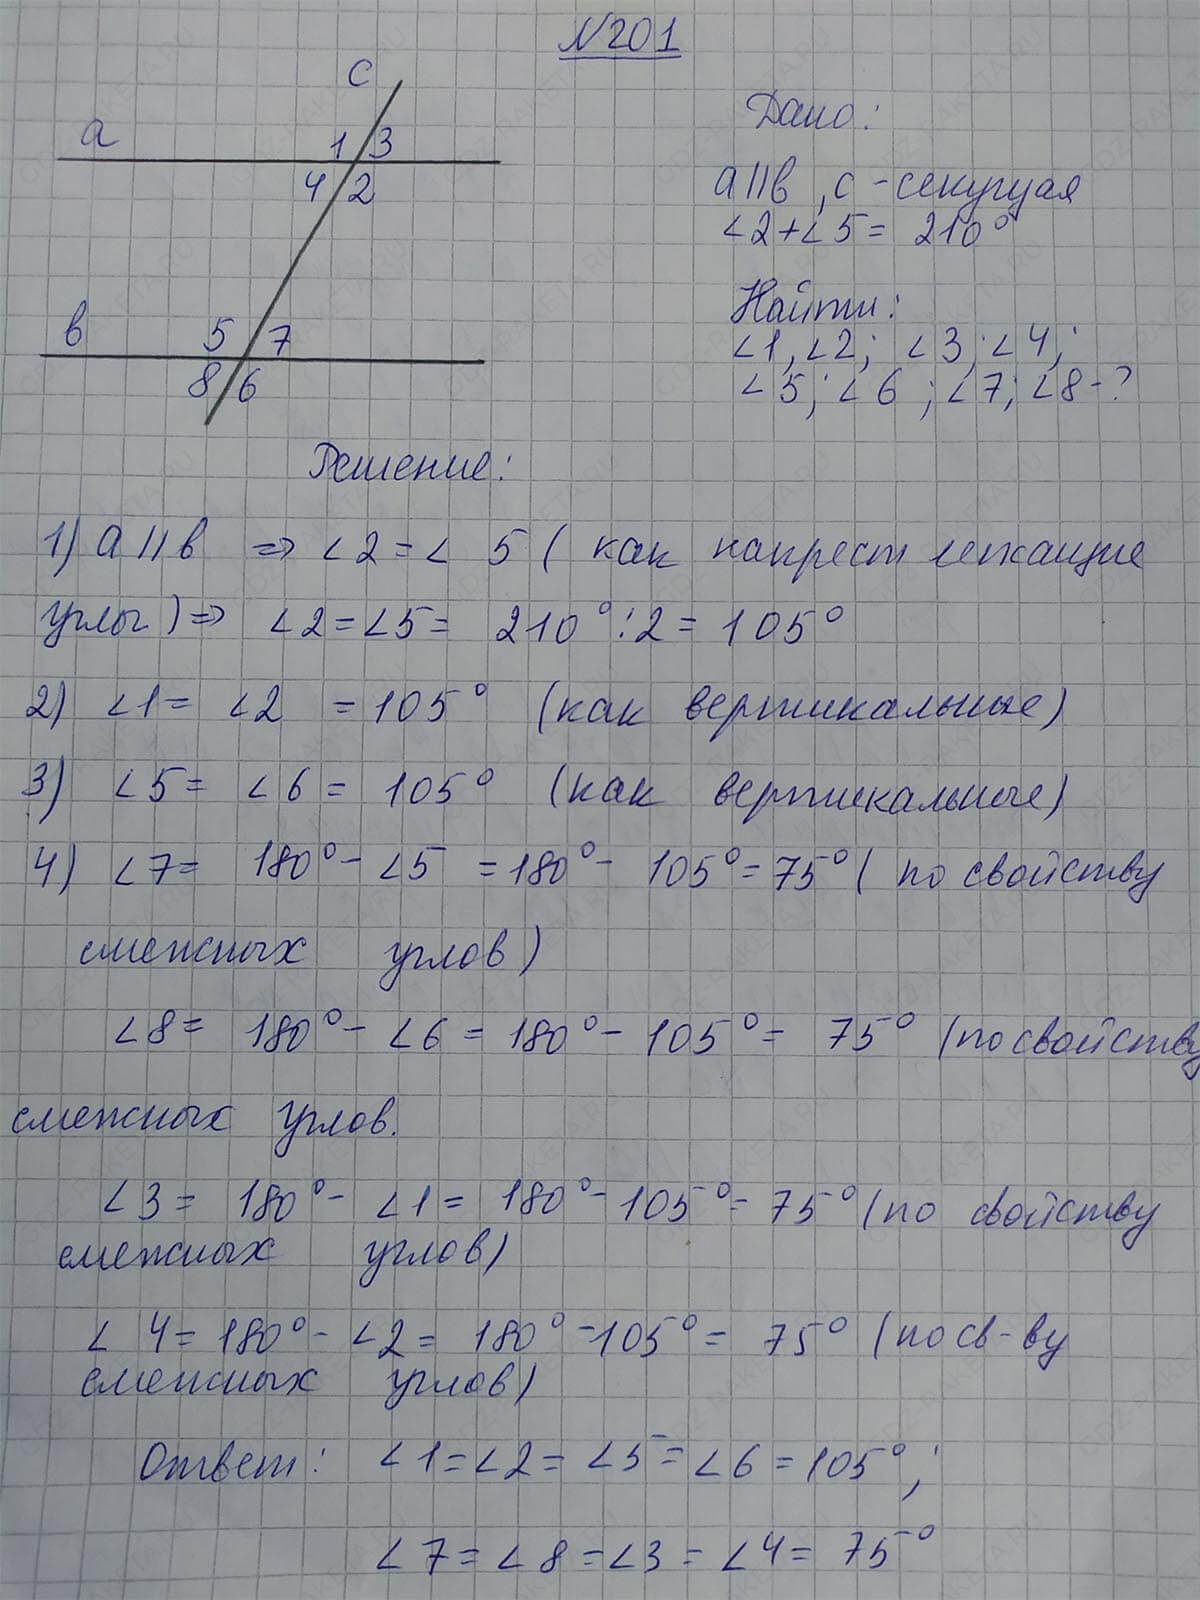 №201
c
a
1 3
4 2
в
5 7
8 6
Дано:
a||в, c - секущая
∠2+∠5= 210°
Найти:
∠1, ∠2; ∠3; ∠4;
∠5; ∠6; ∠7; ∠8-?
Решение:
1) a||в => ∠2=∠ 5 ( как накрест лежащие
углы) => ∠2=∠5= 210°:2= 105°
2) ∠1= ∠2 = 105° (как вертикальные)
3) ∠5= ∠6 = 105° (как вертикальные)
4) ∠7= 180°- ∠5 =180°- 105°=75° ( по свойству
смежных углов)
∠8= 180°- ∠6 = 180°- 105°= 75° (по свойству
смежных углов.
∠3= 180°- ∠1= 180°- 105°= 75° (по свойству
смежных углов)
∠ 4= 180°- ∠2= 180°-105°= 75° (по св-ву
смежных углов)
Ответ: ∠1=∠2= ∠5=∠6=105°;
∠7=∠8=∠3=∠4= 75°